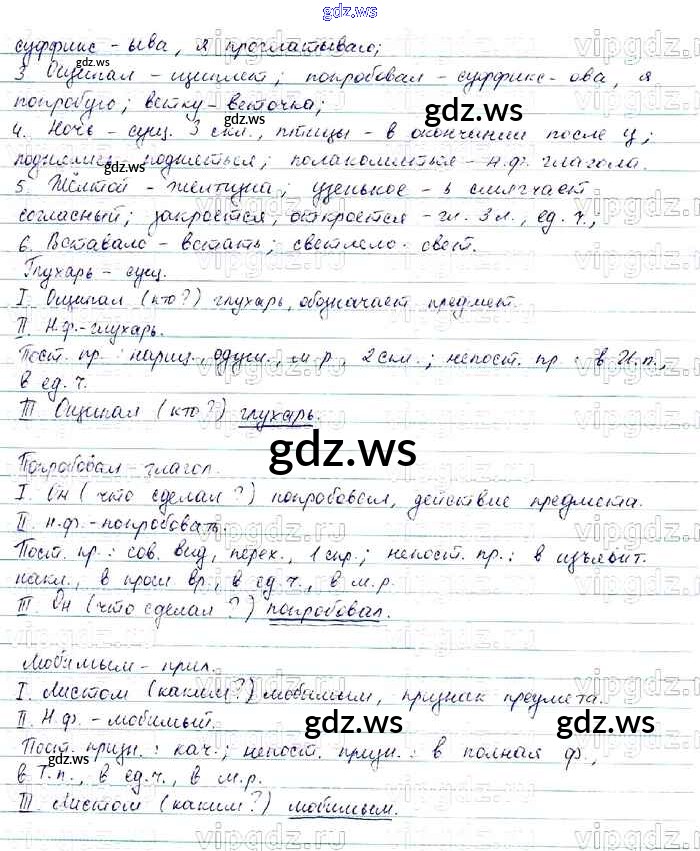 gdz.ws
суффикс - ыва, я проглатываю;
3. Ощипал - щиплет; попробовал - суффикс - ова, я
попробую; ветку - веточка;
4. Ночь - сущ. 3 скл., птицы - в окончании после ц;
поднялись, подняться; полакомиться - н.ф. глагола.
5. Жёлтой - желтизна; узенькое - ь смягчает
согласный; закроется, откроется - гл. 3 л., ед. ч.;
6. Вставало - встать; светлело - свет.
Глухарь - сущ.
I. Ощипал (кто?) глухарь, обозначает предмет.
II. Н.ф. - глухарь.
Пост. пр.: нариц., одуш., м.р., 2 скл.; непост. пр.: в И.п.,
в ед. ч.
III Ощипал (кто?) глухарь.
Попробовал - глагол.
I. Он (что сделал?) попробовал, действие предмета.
II. н.ф. - попробовать.
Пост. пр.: сов. вид, перех., 1 спр.; непост. пр.: в изъявит.
накл., в прош вр., в ед. ч., в м.р.
III. Он (что сделал?) попробовал.
Любимым - прил.
I. Листом (каким?) любимым, признак предмета.
II. Н.ф. - любимый.
Пост. призн.: кач.; непост. призн.: в полная ф.,
в Т.п., в ед. ч., в м.р.
III Листом (каким?) любимым.
gdz.ws
gdz.ws
gdz.ws
gdz.ws
vipgdz.ru